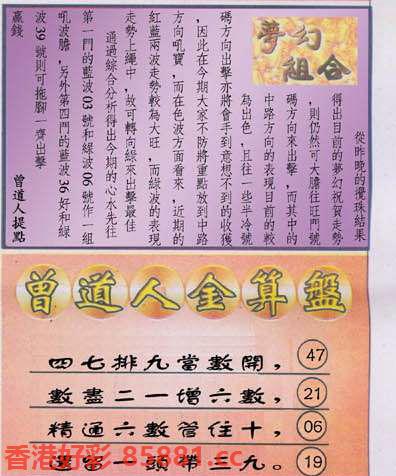 夢幻組合
從昨晚的攪珠結果
得出目前的夢幻祝賀走勢
，則仍然可大膽往旺門號
碼方向來出擊，而其中的
中路方向的表現目前的較
為出色，且往一些半冷號
碼方向出擊亦將會手到意想不到的收獲
，因此在今期大家不防將重點放到中路
方向吼寶，而在色波方面看來，近期的
紅藍兩波走勢較為大旺，而綠波的表現
走勢上繩中，故可轉向綠來出擊最佳
通過綜合分析得出今期的心水先往
第一門的藍波03號和綠波06號作一組
吼波膽，另外第四門的藍波36好和綠
波39號則可拖腳一齊出擊
贏錢
曾道人提點
曾道人金算盤
四七排九當數開，47
數盡二一增六數，21
精通六數管住十，06
還當一頭帶三九。19
香港好彩 85881.cc